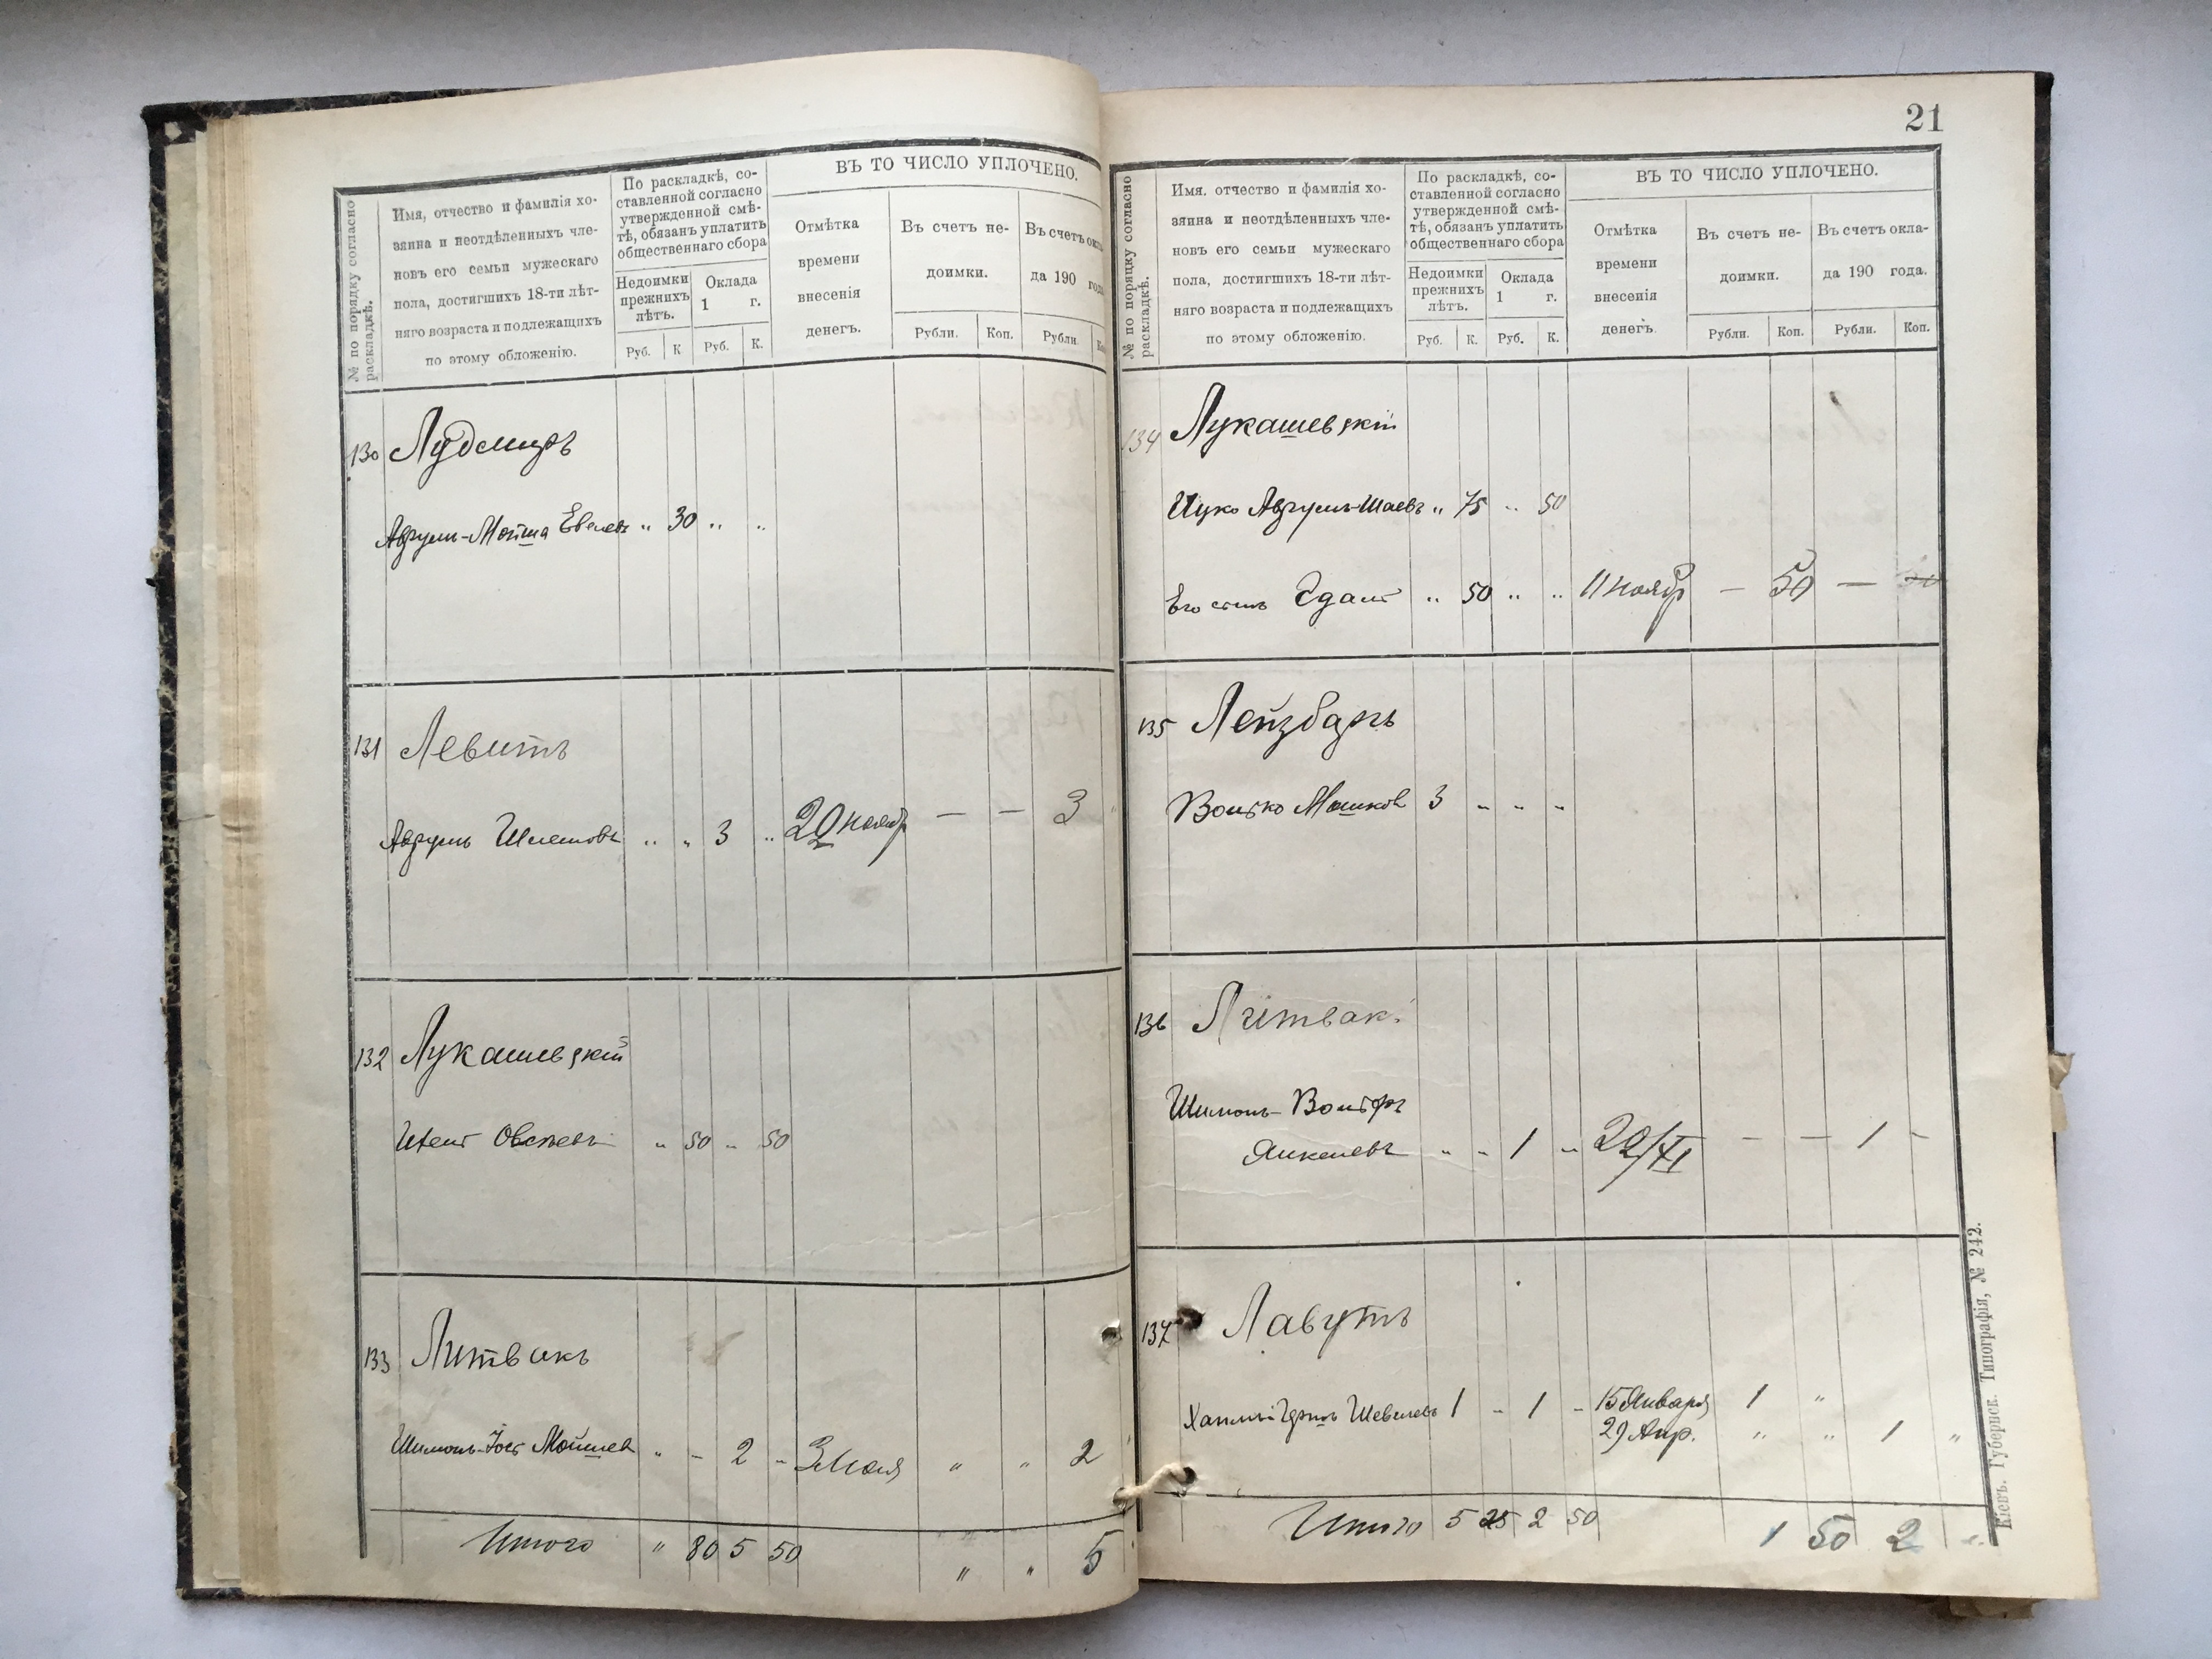 № по порядку согласно
раскладкѣ.
Имя, отчество и фамилія хо-
зяина и неотдѣленныхъ чле-
новъ его семьи мужескаго
пола, достигшихъ 18-ти лѣт-
няго возраста и подлежащихъ
по этому обложенію.
По раскладкѣ, со-
ставленной согласно
утвержденной смѣ-
тѣ, обязанъ уплатить
общественнаго сбора
Недоимки
прежнихъ
лѣтъ.
Оклада
1 г.
Руб. К Руб. К.
ВЪ ТО ЧИСЛО УПЛОЧЕНО.
Отмѣтка
времени
внесенія
денегъ.
Въ счетъ не-
доимки.
Въ счетъ окла
да 190 года
Рубли. Коп. Рубли
130 Лудмиръ
Аврумъ-Мойша Евелевъ " 30 " "
131 Левитъ
Аврумъ Шлемовъ " " 3 " 29 нояб — — 3
132 Лукашевскій
Овсѣевъ " 50 " 50
133 Литвакъ
Шимонъ-Іось Мойшев " - 2 - 3 Июля " " 2
Итого " 80 5 50 " " 5
21
№ по порядку согласно
раскладкѣ.
Имя. отчество и фамилія хо-
зяина и неотдѣленныхъ чле-
новъ его семьи мужескаго
пола, достигшихъ 18-ти лѣт-
няго возраста и подлежащихъ
по этому обложенію.
По раскладкѣ, со-
ставленной согласно
утвержденной смѣ-
тѣ, обязанъ уплатить
общественнаго сбора
Недоимки
прежнихъ
лѣтъ.
Оклада
1 г.
Руб. К. Руб. К.
ВЪ ТО ЧИСЛО УПЛОЧЕНО.
Отмѣтка
времени
внесенія
денегъ.
Въ счетъ не-
доимки.
Въ счетъ окла-
да 190 года.
Рубли. Коп. Рубли. Коп.
134 Лукашевскій
Ицко Аврумъ-Шаевъ " 75 " 50
Его сынъ " 50 " " 11 нояб — 50 —
135 Лейзбаръ
Волько Мошков 3 - - -
136 Літвак
Шимонъ-Вольфъ
Янкелевъ " " 1 " 29/XI - - 1 -
137 Лавутъ
Хаимъ Шевелевъ 1 - 1 - 15 Января 1 "
29 Апр. " " 1 "
Итого 5 25 2 50 1 50 2 "
Кіевъ. Губернск. Типографія, № 242.